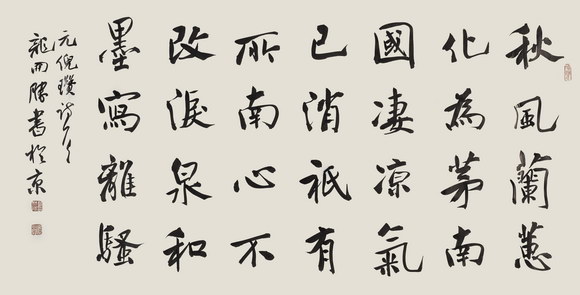 秋風蘭蕙
化為茅南
國凄凉氣
已消祇有
所南心不
改淚泉和
墨寫離騷
元倪瓚詩一首
龍開勝書於京